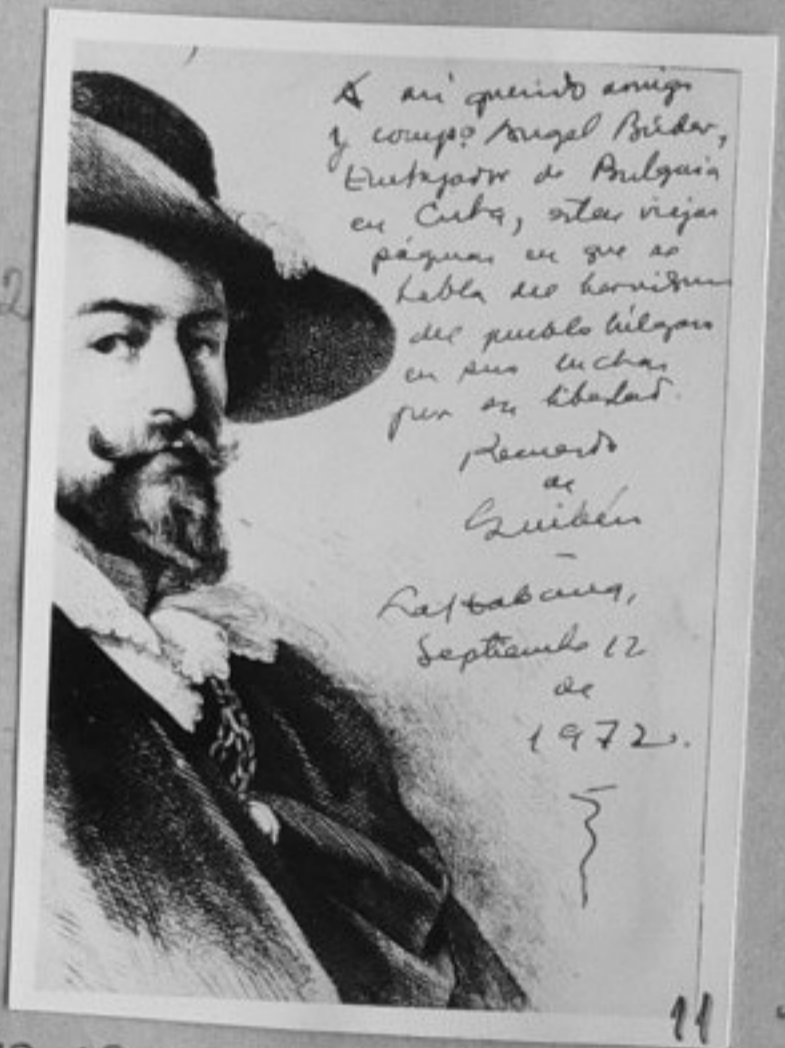 A mi querido amigo
y compº Angel
Embajador de Bulgaria
en Cuba, estas viejas
páginas en que se
habla del heroísmo
del pueblo búlgaro
en sus luchas
por su libertad.
Recuerdo
de
La Habana,
Septiembre 12
de
1972.
11
2